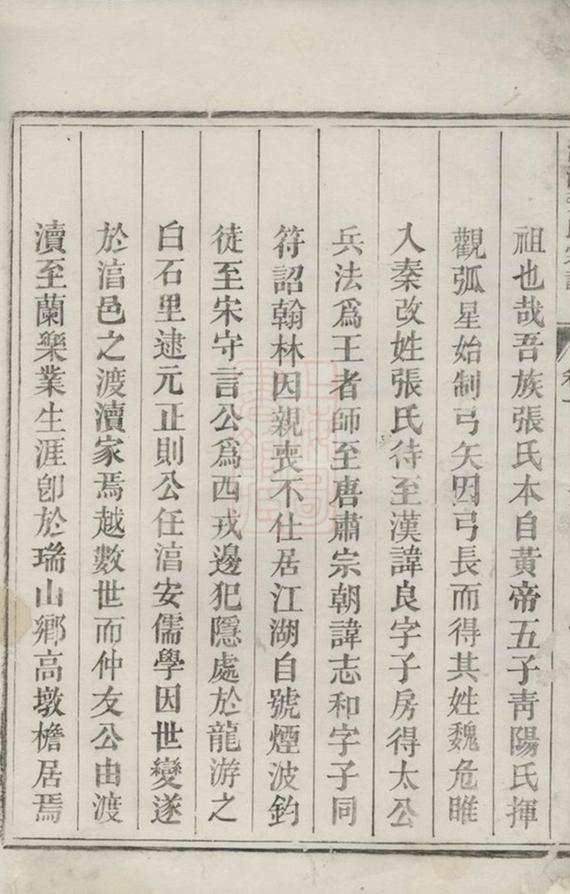 祖也哉吾族張氏本自黃帝五子靑陽氏揮
觀弧星始制弓矢因弓長而得其姓魏危睢
入秦改姓張氏待至漢諱良字子房得太公
兵法爲王者師至唐肅宗朝諱志和字子同
符詔翰林因親喪不仕居江湖自號煙波釣
徒至宋守言公爲西戎邊犯隱處於龍游之
白石里逮元正則公任湻安儒學因世變遂
於湻邑之渡瀆家焉越數世而仲友公由渡
瀆至蘭樂業生涯卽於瑞山鄉高墩檐居焉